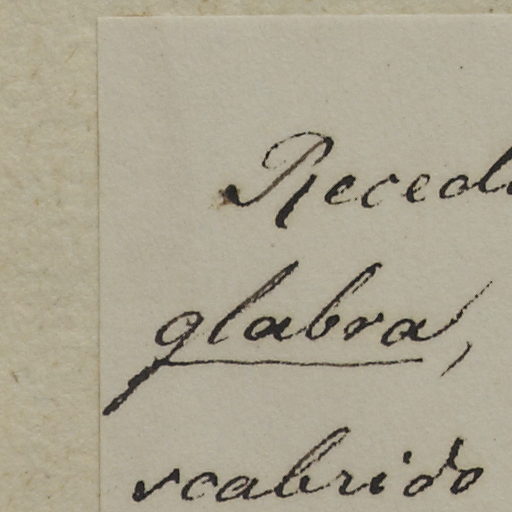 Reced
glabra,
scabrido